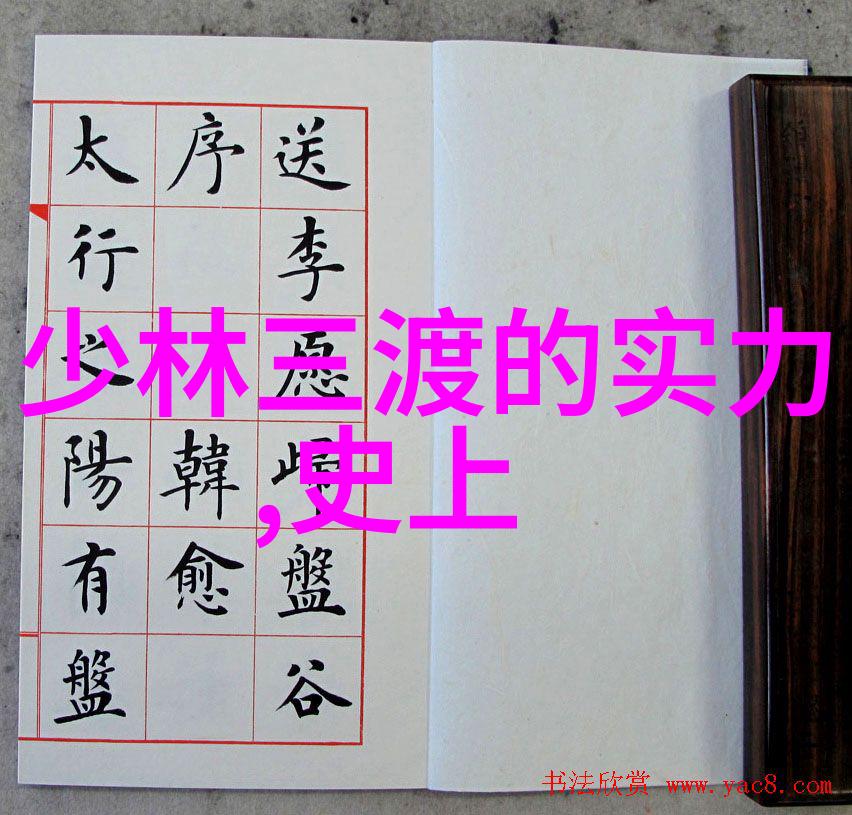 送李愿歸盤谷
序 韓愈
太行之陽有盤
少林三渡的实力
,史上
书法欣赏 www.yac8.com